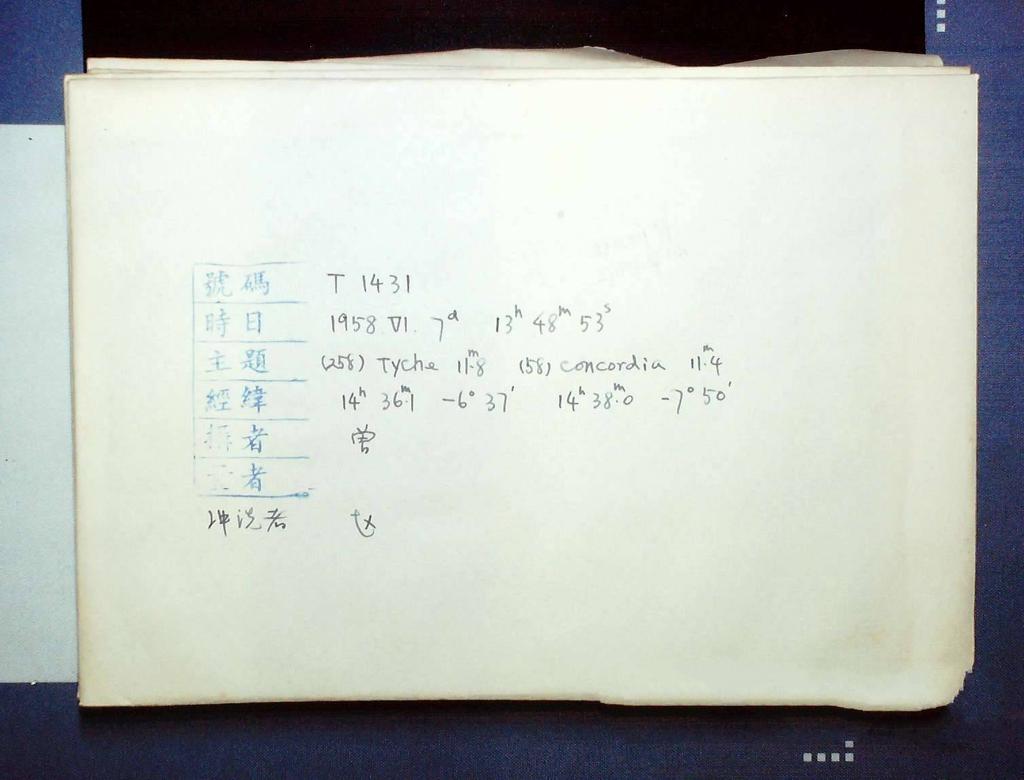 號碼 T 1431
時日 1958 VI. 7ᵈ 13ʰ 48ᵐ 53ˢ
主題 (258) Tyche 11ᵐ.8 (58) concordia 11ᵐ.4
經緯 14ʰ 36ᵐ.1 -6° 37′ 14ʰ 38ᵐ.0 -7° 50′
者 曾
者
冲洗者 赵